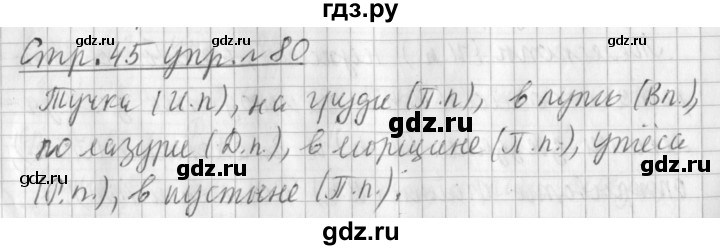 гдз.ру
Стр. 45 упр. № 80
Тучка (И.п), на груди (П.п), в путь (Вп.),
по лазури (Д.п.), в морщине (П.п.), утёса
(Р.п.), в пустыне (П.п.).
gdz.ru gdz.ru
gdz.ru
gdz.ru gdz.ru
gdz.ru
gdz.ru gdz.ru